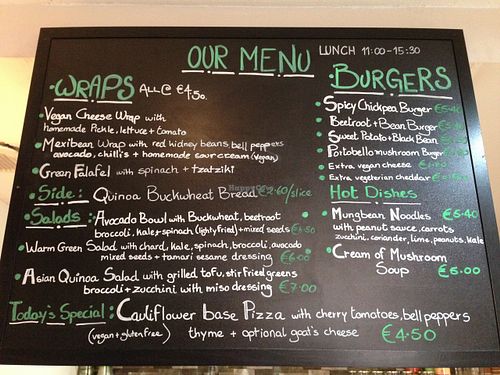 OUR MENU LUNCH 11:00-15:30
·WRAPS ALL @ €4.50.
·Vegan Cheese Wrap with
homemade Pickle, lettuce + tomato
·Mexibean Wrap with red kidney beans, bell peppers
avocado, chilli's + homemade sour cream (vegan)
·Green Falafel with spinach + tzatziki
·Side: Quinoa Buckwheat Bread €2.60/slice
·Salads: ·Avocado Bowl with Buckwheat, beetroot
broccoli, kale + spinach (lightly fried) + mixed seeds
·Warm Green Salad with chard, kale, spinach, broccoli, avocado
mixed seeds + tamari sesame dressing €6.00
·Asian Quinoa Salad with grilled tofu, stir fried greens
broccoli + zucchini with miso dressing €7.00
·BURGERS
·Spicy Chickpea Burger €5.40
·Beetroot + Bean Burger
·Sweet Potato + Black Bean
·Portobello mushroom Burger
·Extra vegan cheese
·Extra vegeterian cheddar
Hot Dishes
·Mungbean Noodles €5.40
with peanut sauce, carrots
zucchini, coriander, lime, peanuts, kale
·Cream of Mushroom
Soup €6.00
Today's Special: Cauliflower base Pizza with cherry tomatoes, bell peppers
(vegan + gluten free) thyme + optional goat's cheese €4.50